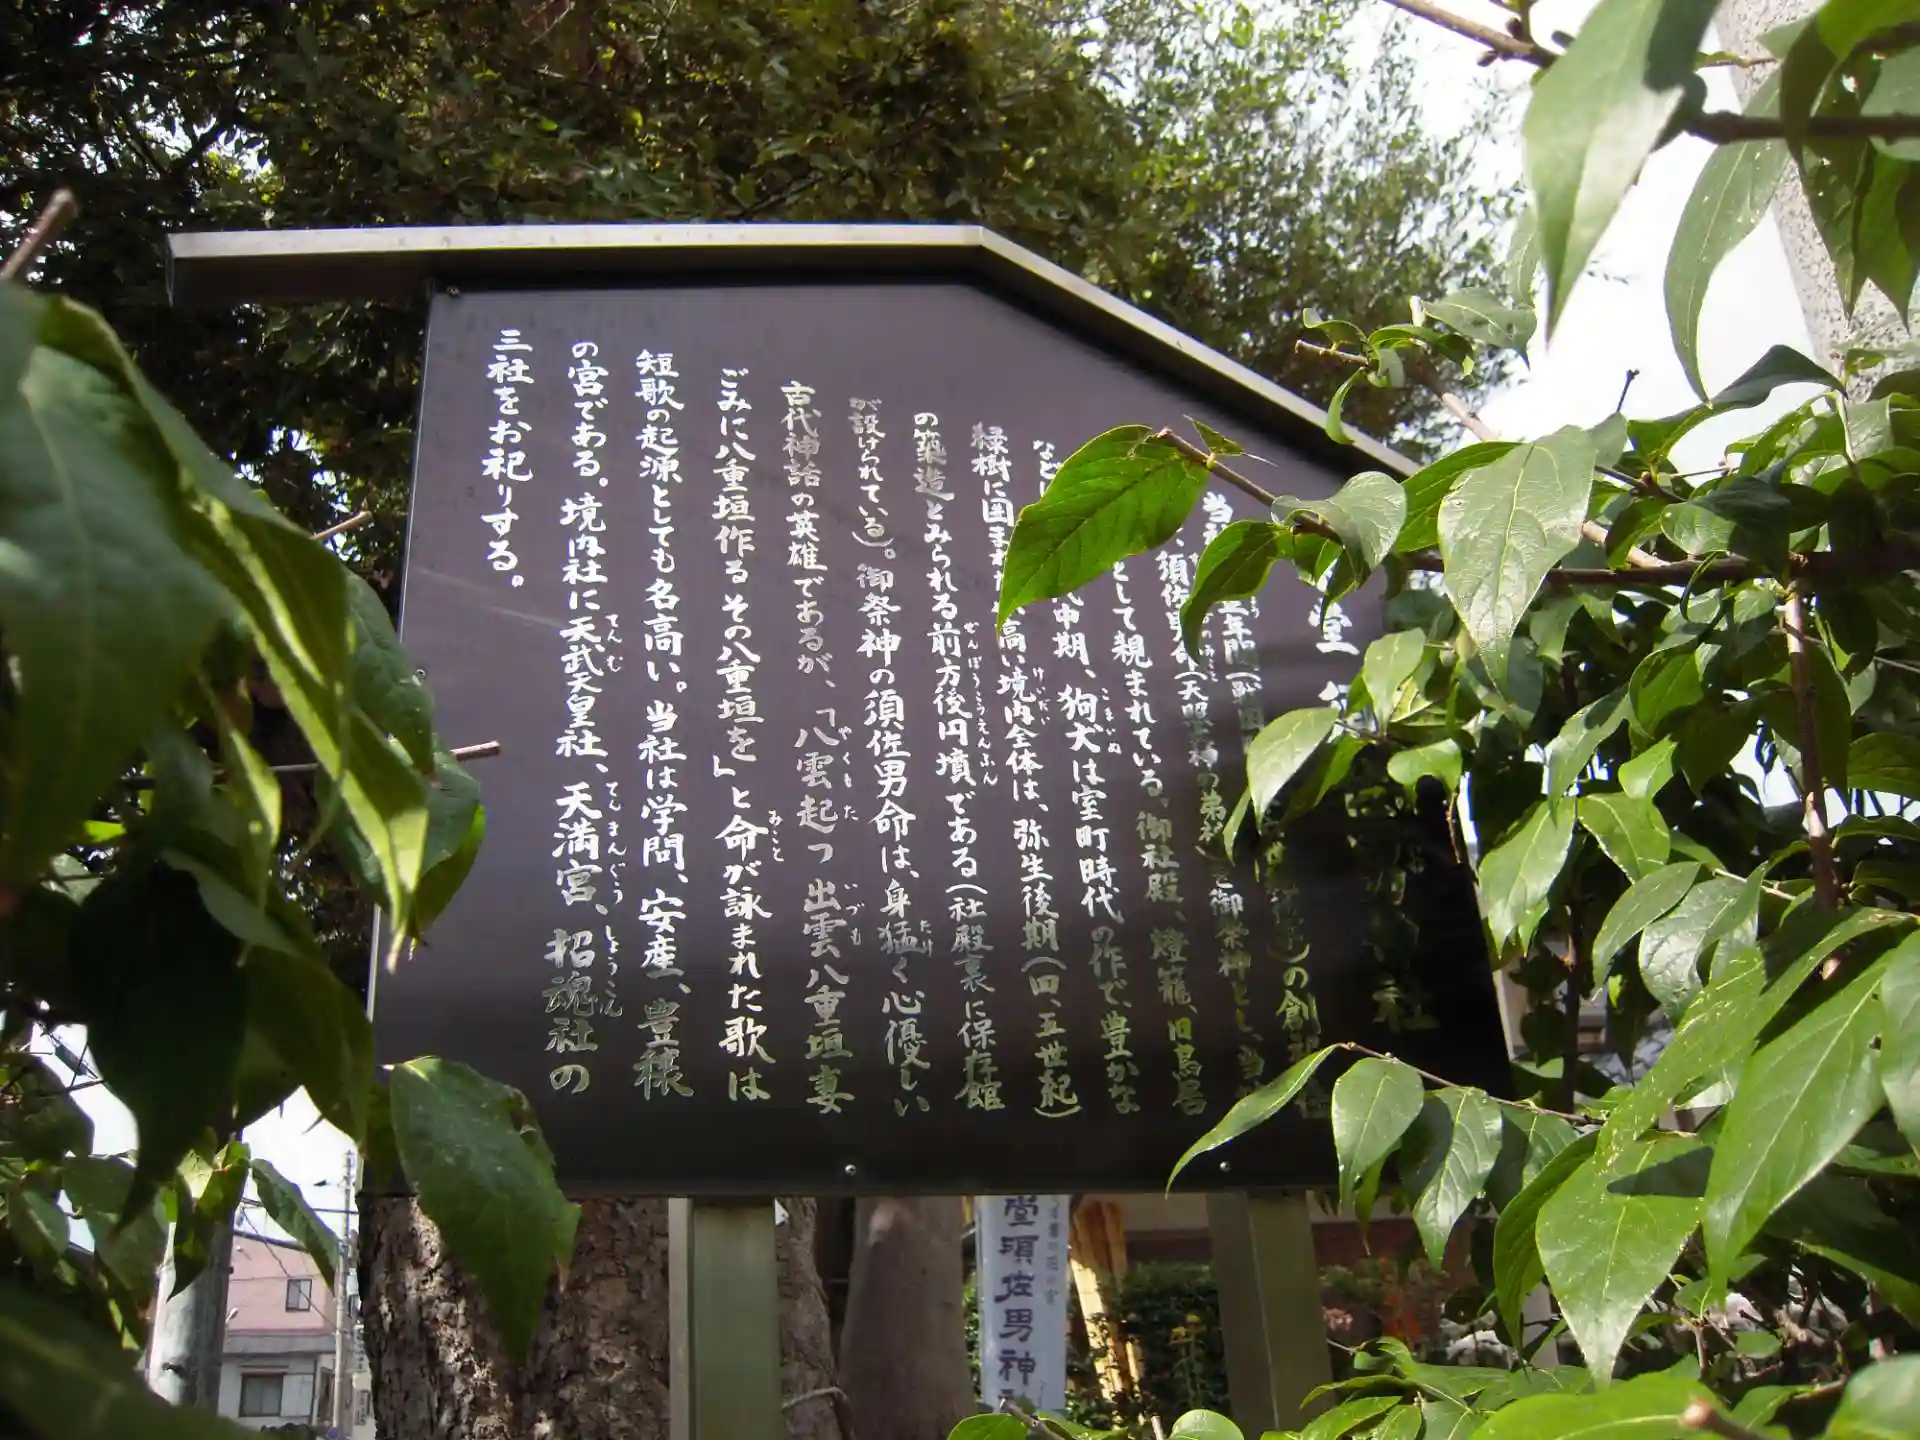 堂 社
当 年間( )の創
、須佐男命(天照 神の弟神)を御祭神とし、当
として親まれている。御社殿、燈籠、旧鳥居
など 中期、狗犬は室町時代の作で、豊かな
緑樹に囲まれ 高い境内全体は、弥生後期(四、五世紀)
の築造とみられる前方後円墳である(社殿裏に保存館
が設けられている)。御祭神の須佐男命は、身猛く心優しい
古代神話の英雄であるが、「八雲起つ出雲八重垣妻
ごみに八重垣作るその八重垣を」と命が詠まれた歌は
短歌の起源としても名高い。当社は学問、安産、豊穣
の宮である。境内社に天武天皇社、天満宮、招魂社の
三社をお祀りする。
こまいぬ
けいだい
ぜんぽうこうえんふん
たけ
やくもた
いづも
みこと
てんむ
てんまんぐう
しょうこん
堂須佐男神社